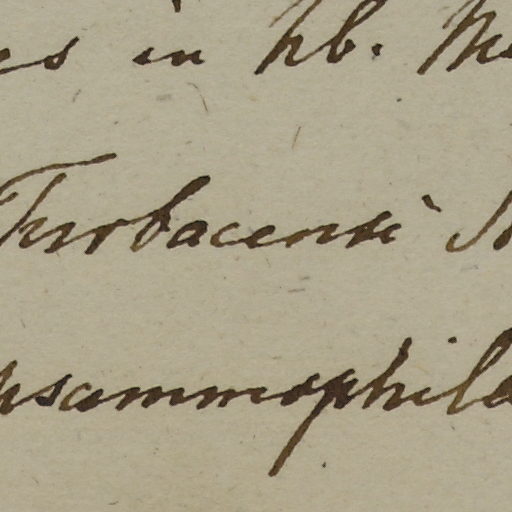 es in hb. M
Turbacensi
psammophila